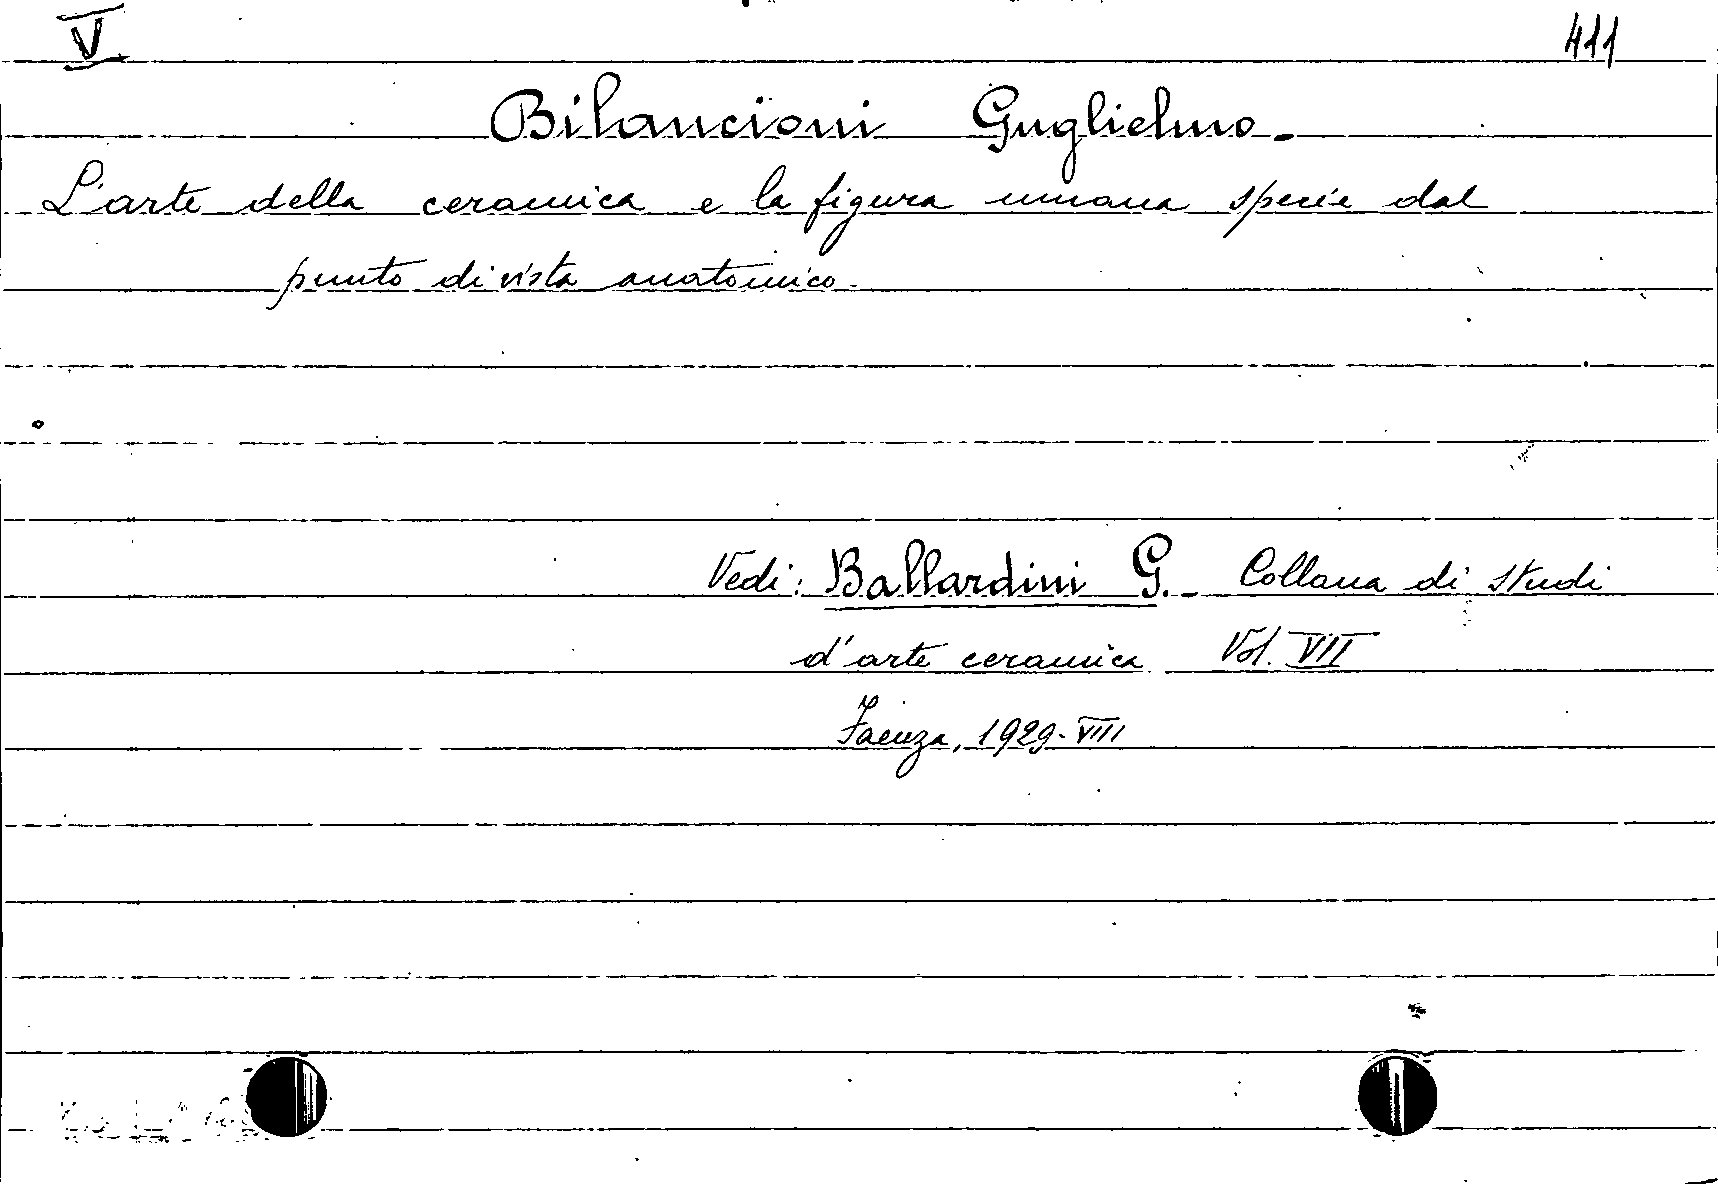 V 411
Bilancioni Guglielmo.
L'arte della ceramica e la figura umana specie dal
punto di vista anatomico.
Vedi: Ballardini G. - Collana di studi
d'arte ceramica Vol. VII
Faenza, 1929-VIII